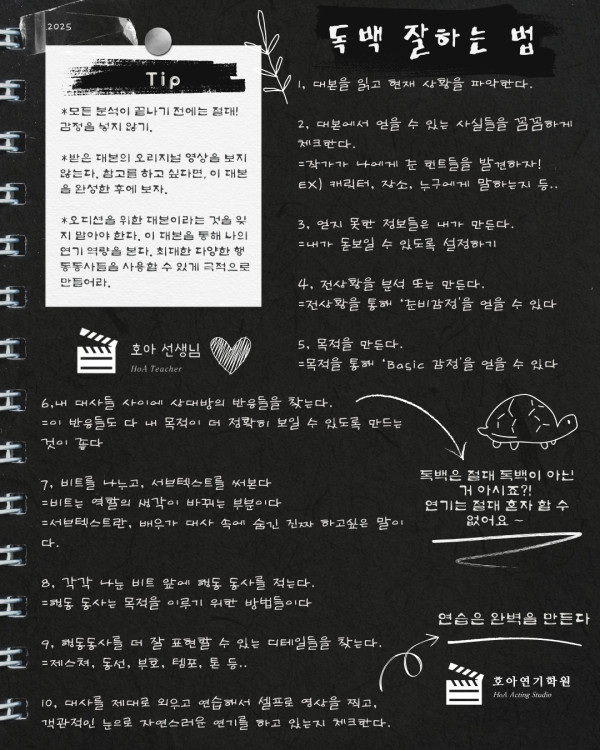 2025
독백 잘하는 법
Tip
*모든 분석이 끝나기 전에는 절대!
감정을 넣지 않기.
*받은 대본의 오리지널 영상을 보지
않는다. 참고를 하고 싶다면, 이 대본
을 완성한 후에 보자.
*오디션을 위한 대본이라는 것을 잊
지 말아야 한다. 이 대본을 통해 나의
연기 역량을 본다. 최대한 다양한 행
동동사들을 사용할 수 있게 극적으로
만들어라.
호아 선생님
HoA Teacher
1, 대본을 읽고 현재 상황을 파악한다.
2, 대본에서 얻을 수 있는 사실들을 꼼꼼하게
체크한다.
=작가가 나에게 준 힌트들을 발견하자!
EX) 캐릭터, 장소, 누구에게 말하는지 등..
3, 얻지 못한 정보들은 내가 만든다.
=내가 돋보일 수 있도록 설정하기
4, 전상황을 분석 또는 만든다.
=전상황을 통해 '준비감정'을 얻을 수 있다
5, 목적을 만든다.
=목적을 통해 'Basic 감정'을 얻을 수 있다
6,내 대사들 사이에 상대방의 반응들을 찾는다.
=이 반응들도 다 내 목적이 더 정확히 보일 수 있도록 만드는
것이 좋다
7, 비트를 나누고, 서브텍스트를 써본다
=비트는 역할의 생각이 바뀌는 부분이다
=서브텍스트란, 배우가 대사 속에 숨긴 진짜 하고싶은 말이
다.
8, 각각 나눈 비트 앞에 행동 동사를 적는다.
=행동 동사는 목적을 이루기 위한 방법들이다
9, 행동동사를 더 잘 표현할 수 있는 디테일들을 찾는다.
=제스쳐, 동선, 부호, 템포, 톤 등..
10, 대사를 제대로 외우고 연습해서 셀프로 영상을 찍고,
객관적인 눈으로 자연스러운 연기를 하고 있는지 체크한다.
독백은 절대 독백이 아닌
거 아시죠?!
연기는 절대 혼자 할 수
없어요 ~
연습은 완벽을 만든다
호아연기학원
HoA Acting Studio